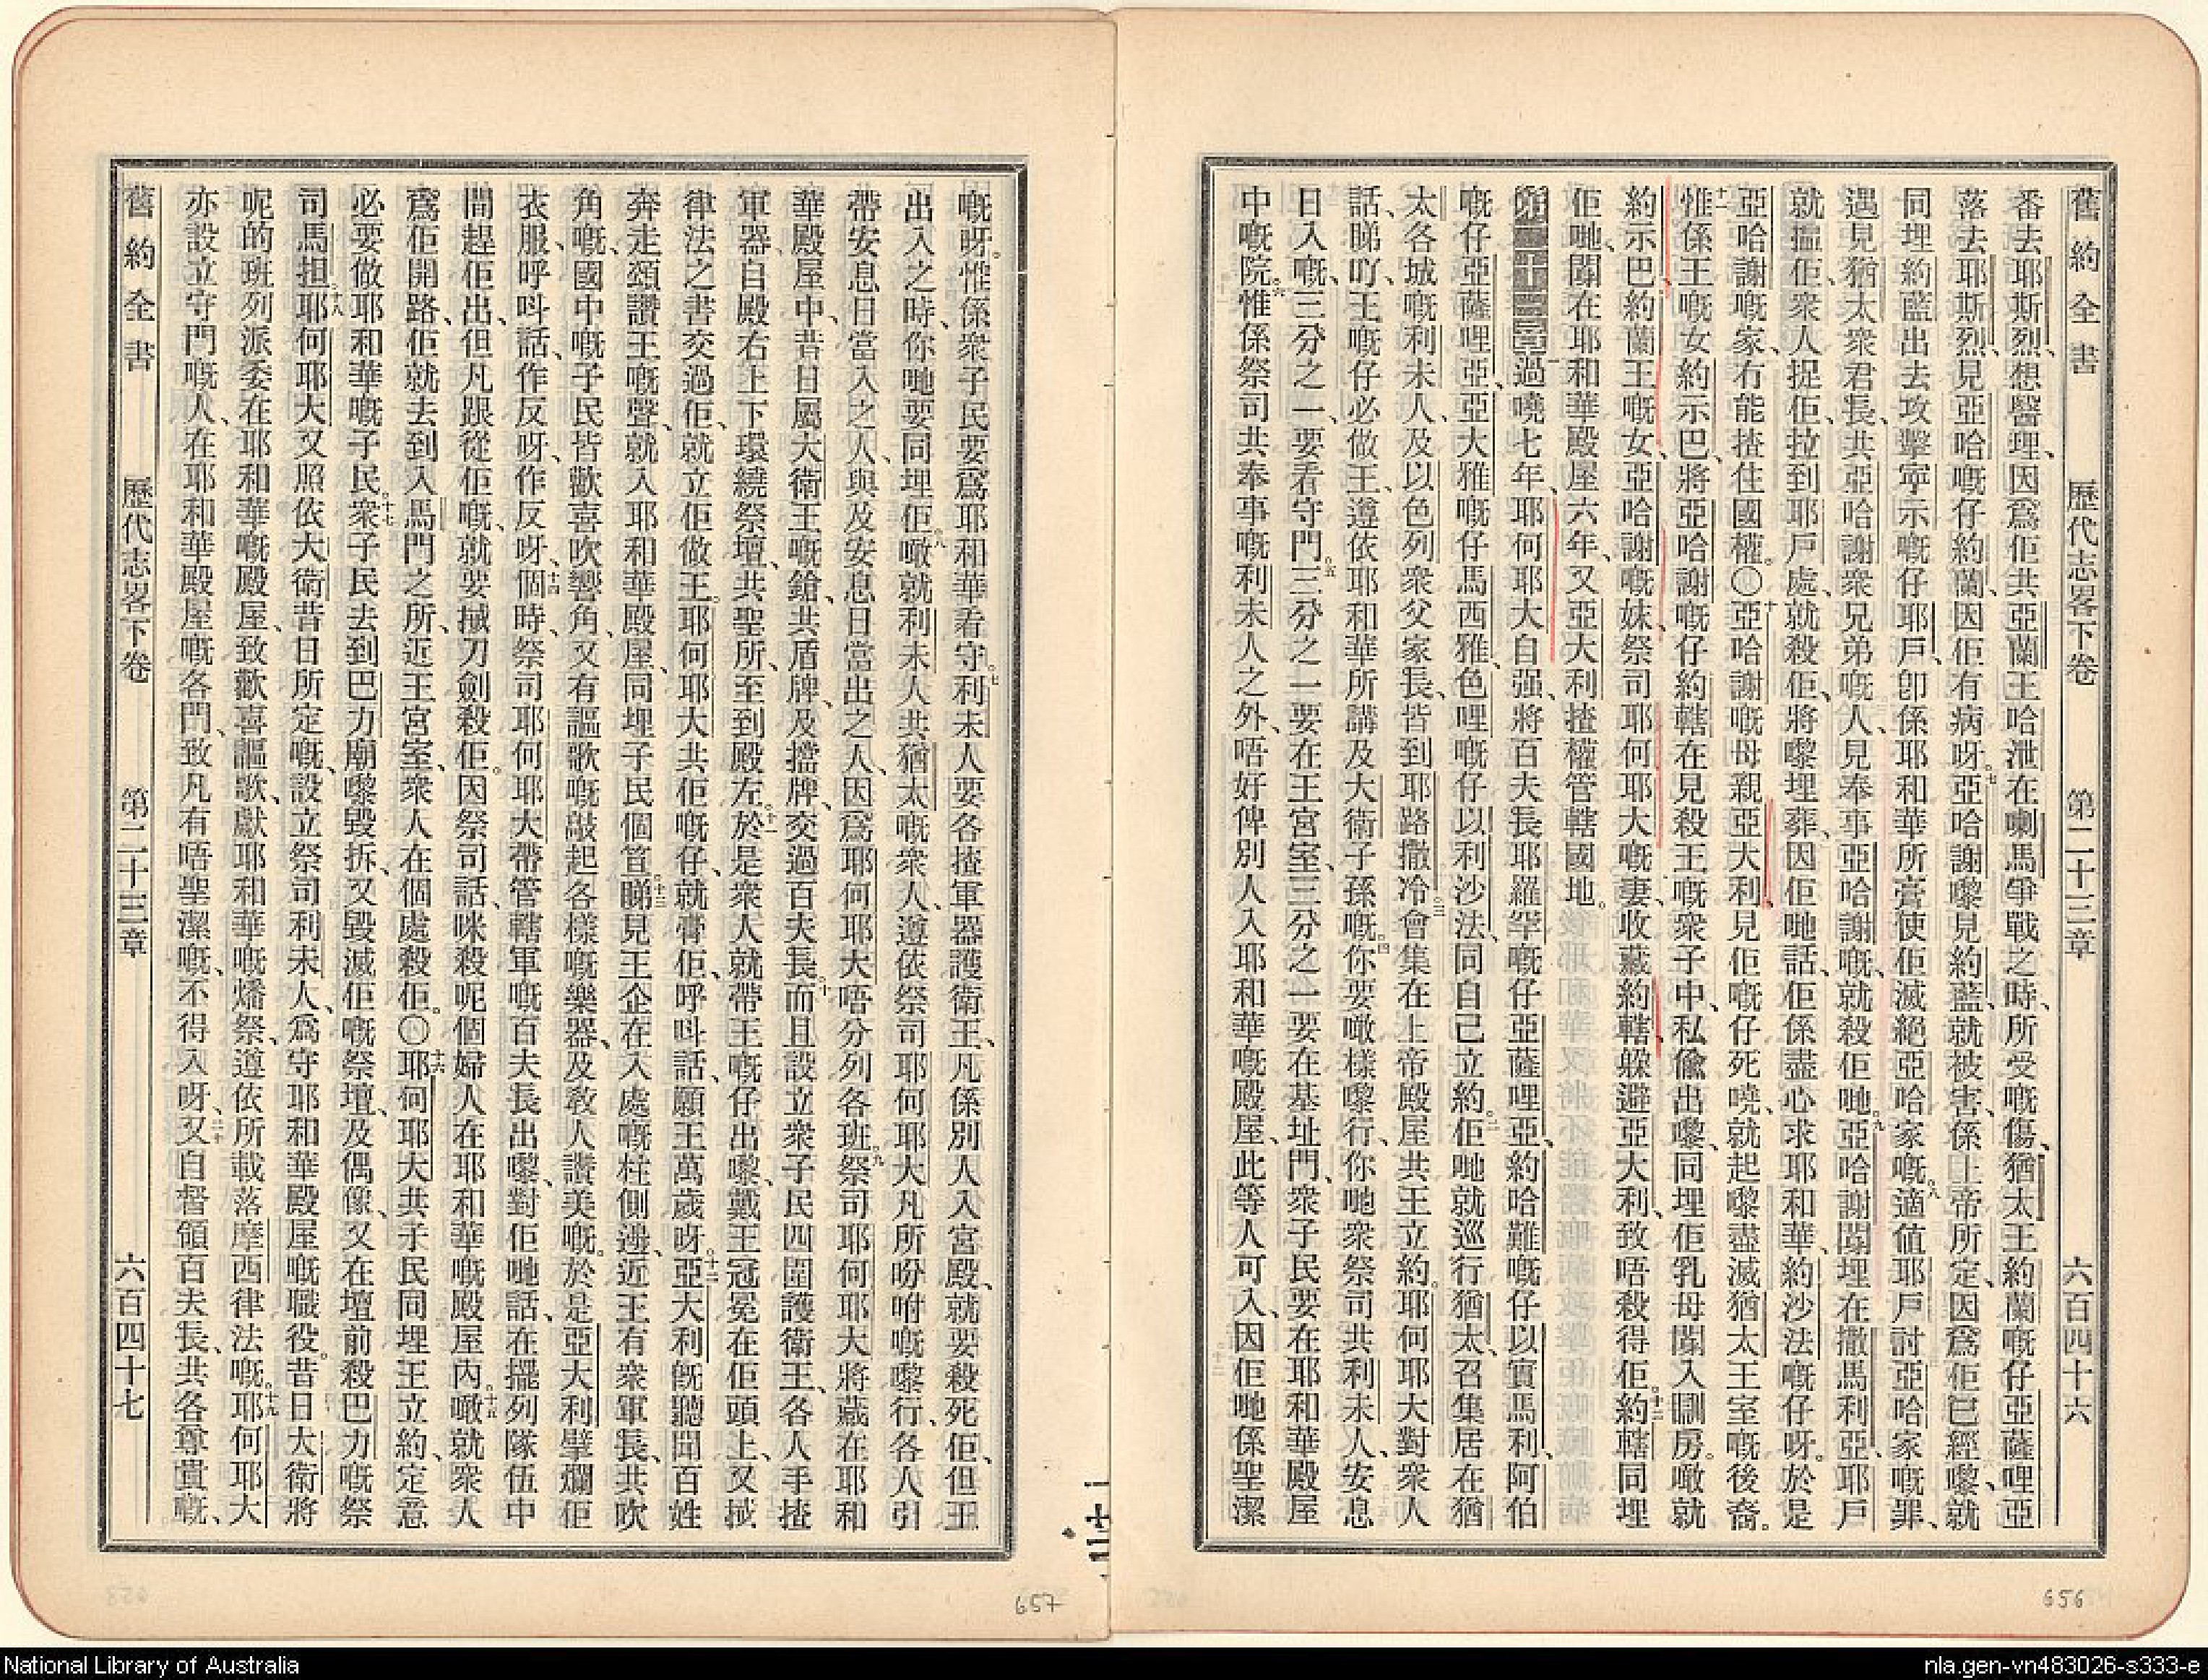 舊約全書 歷代志畧下卷 第二十三章 六百四十六
番去耶斯烈、想醫理、因爲佢共亞蘭王哈泄在喇馬爭戰之時、所受嘅傷、猶太王約蘭嘅仔亞薩哩亞
落去耶斯烈、見亞哈嘅仔約蘭、因佢有病呀。七亞哈謝嚟見約藍、就被害、係上帝所定、因爲佢已經嚟、就
同埋約藍出去攻擊寧示嘅仔耶戶、卽係耶和華所膏、使佢滅絕亞哈家嘅。八適値耶戶討亞哈家嘅罪、
遇見猶太衆君長、共亞哈謝衆兄弟嘅人、見奉事亞哈謝嘅、就殺佢哋。九亞哈謝匿埋在撒馬利亞、耶戶
就搵佢、衆人捉佢、拉到耶戶處、就殺佢、將嚟埋葬、因佢哋話、佢係盡心求耶和華、約沙法嘅仔呀。於是
亞哈謝嘅家、冇能揸住國權。〇十亞哈謝嘅母親亞大利、見佢嘅仔死嘵、就起嚟盡滅猶太王室嘅後裔。
十一惟係王嘅女約示巴、將亞哈謝嘅仔約轄、在見殺王嘅衆子中、私偸出嚟、同埋佢乳母閙入房。噉就
約示巴、約蘭王嘅女、亞哈謝嘅妹、祭司耶何耶大嘅妻、收藏約轄、躱避亞大利、致唔殺得佢。十二約轄同埋
佢哋、閙在耶和華殿屋六年、又亞大利揸權管轄國地。
第二十三章 一過嘵七年、耶何耶大自强、將百夫長耶羅罕嘅仔亞薩哩亞、約哈難嘅仔以實馬利、阿伯
嘅仔亞薩哩亞、亞大雅嘅仔馬西雅、色哩嘅仔以利沙法、同自己立約。二佢哋就巡行猶太、召集居在猶
太各城嘅利未人、及以色列衆父家長、皆到耶路撒冷。三會集在上帝殿屋、共王立約。耶何耶大對衆人
話、睇吓、王嘅仔必做王、遵依耶和華所講及大衛子孫嘅。四你要噉樣嚟行、你哋衆祭司共利未人、安息
日入嘅、三分之一、要看守門。五三分之一要在王宮室、三分之一要在基址門、衆子民要在耶和華殿屋
中嘅院。六惟係祭司共奉事嘅利未人之外、唔好俾別人入耶和華嘅殿屋、此等人可入、因佢哋係聖潔
656
舊約全書 歷代志畧下卷 第二十三章 六百四十七
嘅呀。惟係衆子民要爲耶和華看守。七利未人要各揸軍器護衛王、凡係別人入宮殿、就要殺死佢、但王
出入之時、你哋要同埋佢。八噉就利未人共猶太嘅衆人、遵依祭司耶何耶大凡所吩咐嘅嚟行、各人引
帶安息日當入之人、與及安息日當出之人、因爲耶何耶大唔分列各班。九祭司耶何耶大、將藏在耶和
華殿屋中、昔日屬大衛王嘅鎗、共盾牌、及擋牌、交過百夫長。十而且設立衆子民四圍護衛王、各人手揸
軍器、自殿右上下環繞祭壇、共聖所、至到殿左。十一於是衆人就帶王嘅仔出嚟、戴王冠冕在佢頭上、又拭
律法之書交過佢、就立佢做王。耶何耶大共佢嘅仔、就膏佢、呼呌話、願王萬歲呀。十二亞大利旣聽聞百姓
奔走頌讚王嘅聲、就入耶和華殿屋、同埋子民個笪。十三睇見王企在入處嘅柱側邊、近王有衆軍長、共吹
角嘅、國中嘅子民皆歡喜吹響角、又有謳歌嘅敲起各樣嘅樂器、及敎人讚美嘅。於是亞大利擘爛佢
衣服、呼呌話、作反呀、作反呀、十四個時、祭司耶何耶大帶管轄軍嘅百夫長出嚟、對佢哋話、在擺列隊伍中
間趕佢出、但凡跟從佢嘅、就要搣刀劍殺佢。因祭司話、咪殺呢個婦人在耶和華嘅殿屋內。十五噉就衆人
爲佢開路、佢就去到入馬門之所、近王宮室、衆人在個處殺佢。〇十六耶何耶大共子民同埋王立約、定意
必要做耶和華嘅子民。十七衆子民去到巴力廟嚟毀拆、又毀滅佢嘅祭壇、及偶像、又在壇前殺巴力嘅祭
司馬担。十八耶何耶大又照依大衛昔日所定嘅、設立祭司利未人、爲守耶和華殿屋嘅職役。昔日大衛將
呢的班列派委在耶和華嘅殿屋、致歡喜謳歌、獻耶和華嘅燔祭、遵依所載落摩西律法嘅。十九耶何耶大
亦設立守門嘅人、在耶和華殿屋嘅各門、致凡有唔聖潔嘅、不得入呀、二十又自督領百夫長、共各尊貴嘅、
657
National Library of Australia
nla.gen-vn483026-s333-e